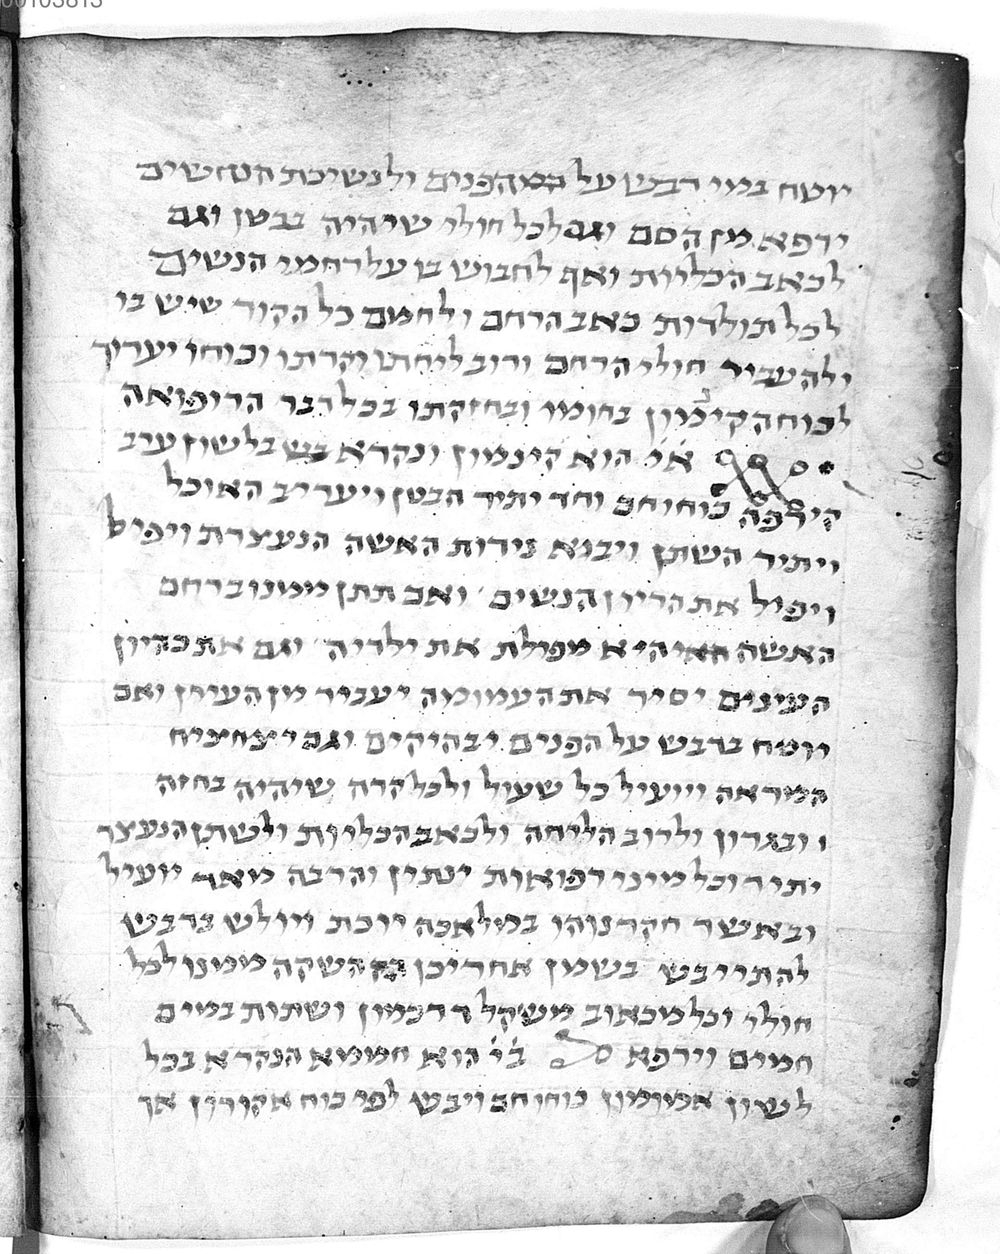 יוטח במי דבש על הפנים ולנשיכת הנחשים
ירפא מן הסם וגם לכל חולי שיהיה בבטן וגם
לכאב הכליות ואף לחבוש בו על רחמי הנשים
לכל תולדות כאב הרחם ולחמם כל הקור שיש בו
ולהעביר חולי הרחם ורוב ליחתו וקרתו וכוחו יערוך
לכוח הקינמון בחומו ובחזקתו בכל דבר הרופואה
א׳י׳ הוא קינמון ונקרא בלשון ערב
הירפה כוחו חם וחד יתיר הבטן ויעריב האוכל
ויתיר השתן ויבוא נידות האשה הנעצרת ויפיל
ויפול את הריון הנשים ואם תתן ממנו ברחם
האשה היא מפולת את ילדיה וגם את כהיון
העינים יסיר את העמומה יעביר מן העיין ואם
יוטח בדבש על הפנים יבהיקים וגם יצחציח
המראה ויועיל כל שעול ולכל קרה שיהיה בחזה
ובגרון ולרוב הליחה ולכאב הכליות ולשתן הנעצר
יתיר וכל מיני רפואות ינתין והרבה מאד יועיל
ובאשר חקרנוהו במלאכה יוכת ויולש בדבש
להתייבש בשמן אחריכן השקה ממנו לכל
חולי וכל מכאוב משקל דרכמון ושתות במים
חמים וירפא סל ב׳י׳ הוא חממא הנקרא בכל
לשון אמומון כוחו חם ויבש לפי כוח אקורון אך